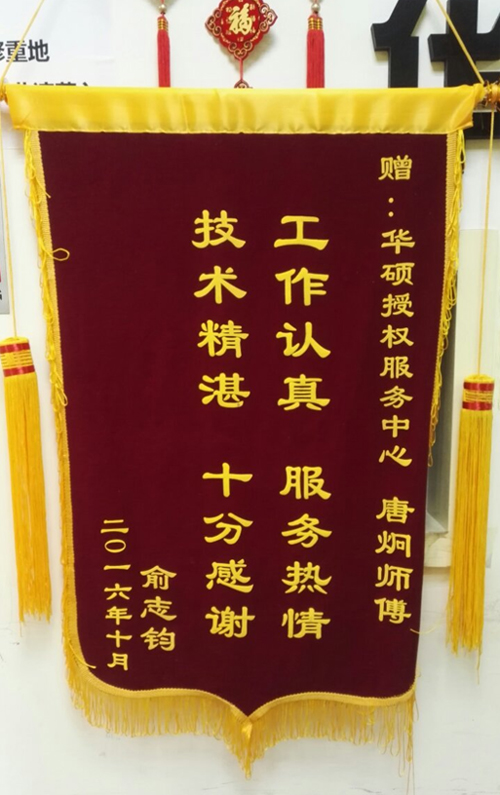 赠：华硕授权服务中心 唐炯师傅
工作认真 服务热情
技术精湛 十分感谢
俞志钧
二〇一六年十月
修重地
福